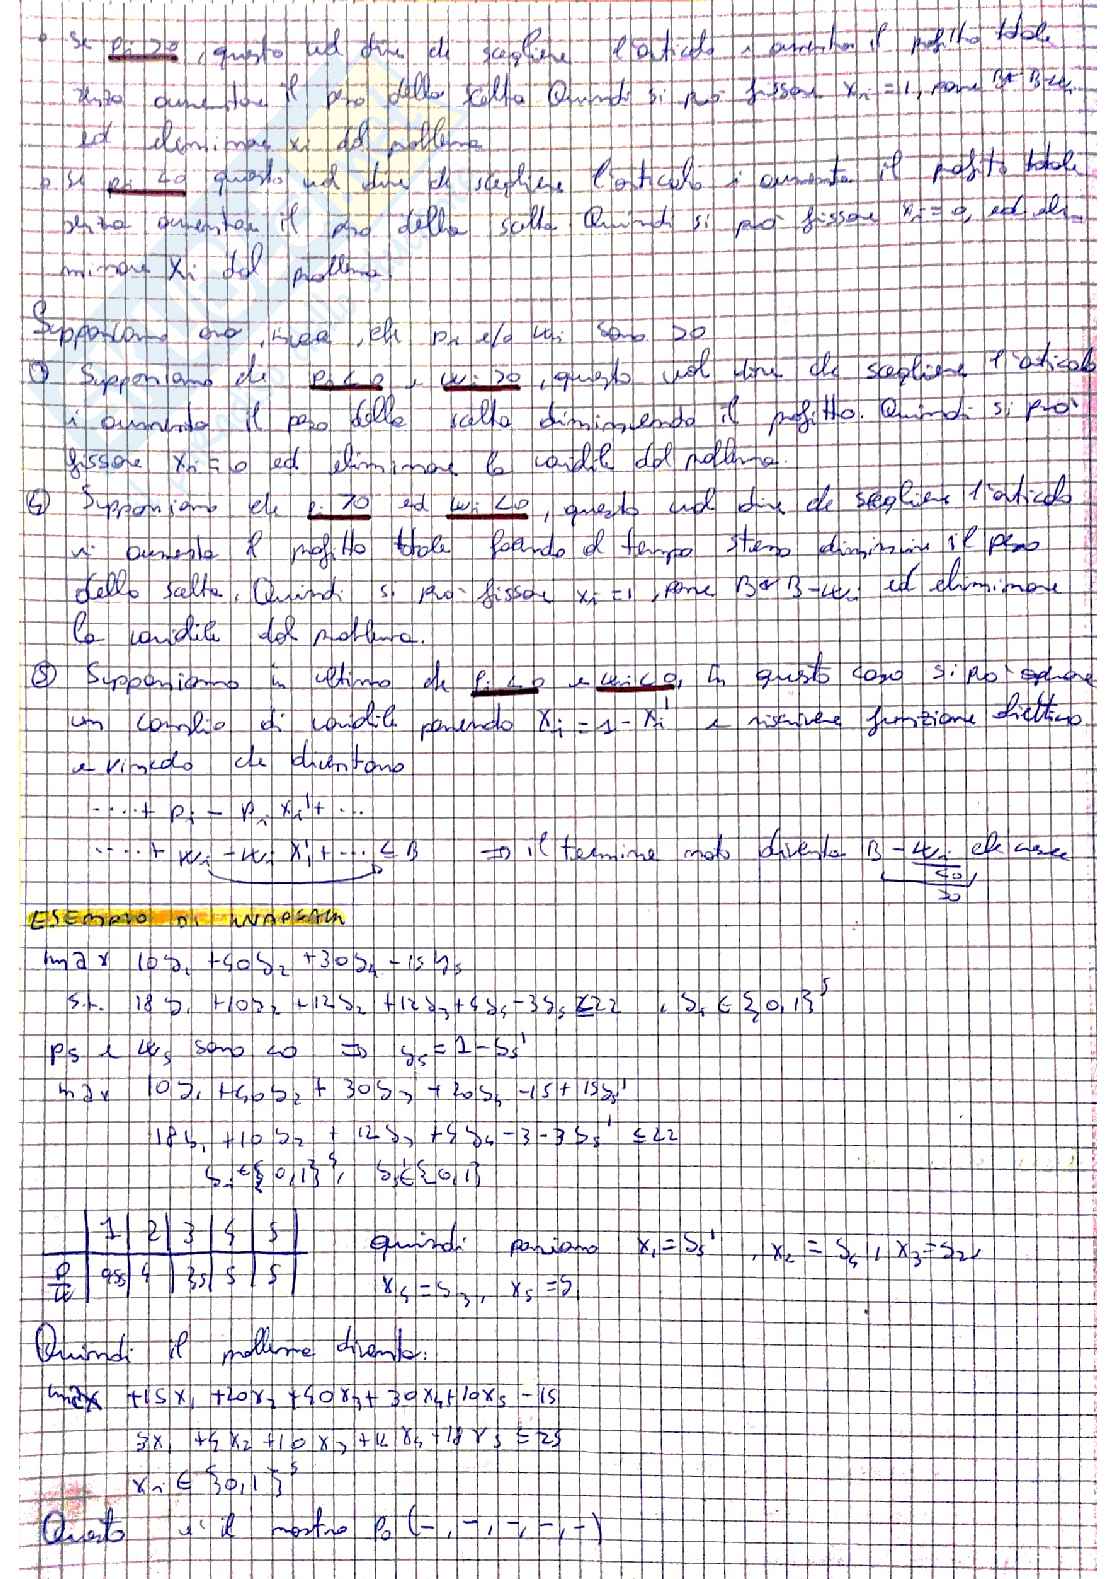 • Se pi>0, questo vuol dire che scegliere l'articolo i aumenta il profitto totale
senza aumentare il peso della scelta Quindi si può fissare xi=1, porre B=B-wi
ed eliminare xi dal problema
• Se pi<0 questo vuol dire che scegliere l'articolo i aumenta il profitto totale
senza aumentare il peso della scelta Quindi si può fissare xi=0, ed eli-
minare xi dal problema
Supponiamo ora, che pi e/o wi sono >0
③ Supponiamo che pi<0 e wi>0, questo vuol dire che scegliere l'articolo
i aumenta il peso della scelta diminuendo il profitto. Quindi si può
fissare xi=0 ed eliminare la variabile dal problema.
④ Supponiamo che pi>0 ed wi<0, questo vuol dire che scegliere l'articolo
i aumenta il profitto totale facendo al tempo stesso diminuire il peso
della scelta. Quindi si può fissare xi=1, porre B=B-wi ed eliminare
la variabile dal problema.
⑤ Supponiamo in ultimo che pi<0 e wi<0, in questo caso si può operare
un cambio di variabile ponendo xi=1-xi' e riscrivere funzione obiettivo
e vincolo che diventano
....+ pi - pi xi' + ...
....+ wi - wi xi' + ... ≤ B ⇒ il termine noto diventa B - wi che cresce
<0
>0
ESEMPIO DI KNAPSACK
max 10y1 +40y2 +30y4 -15y5
s.t. 18y1 +10y2 +12y2 +12y3 +4y5 -3y5 ≤22 , yi ∈ {0,1}^5
p5 e w5 sono <0 ⇒ y5=1-y5'
max 10y1 +40y2 + 30y3 + 20y4 -15 + 15y5'
18y1 +10y2 + 12y3 +4y4 -3 -3y5' ≤22
yi∈{0,1}^5, yi∈{0,1}
1 | 2 | 3 | 4 | 5
p/w
quindi poniamo x1=y5', x2=y4, x3=y2,
x4=y3, x5=y1
Quindi il problema diventa:
max +15x1 +20x2 +40x3 +30x4 +10x5 -15
3x1 +4x2 +10x3 +12x4 +18x5 ≤25
xi ∈ {0,1}^5
Questo e' il nostro P0 (-,-,-,-,-)